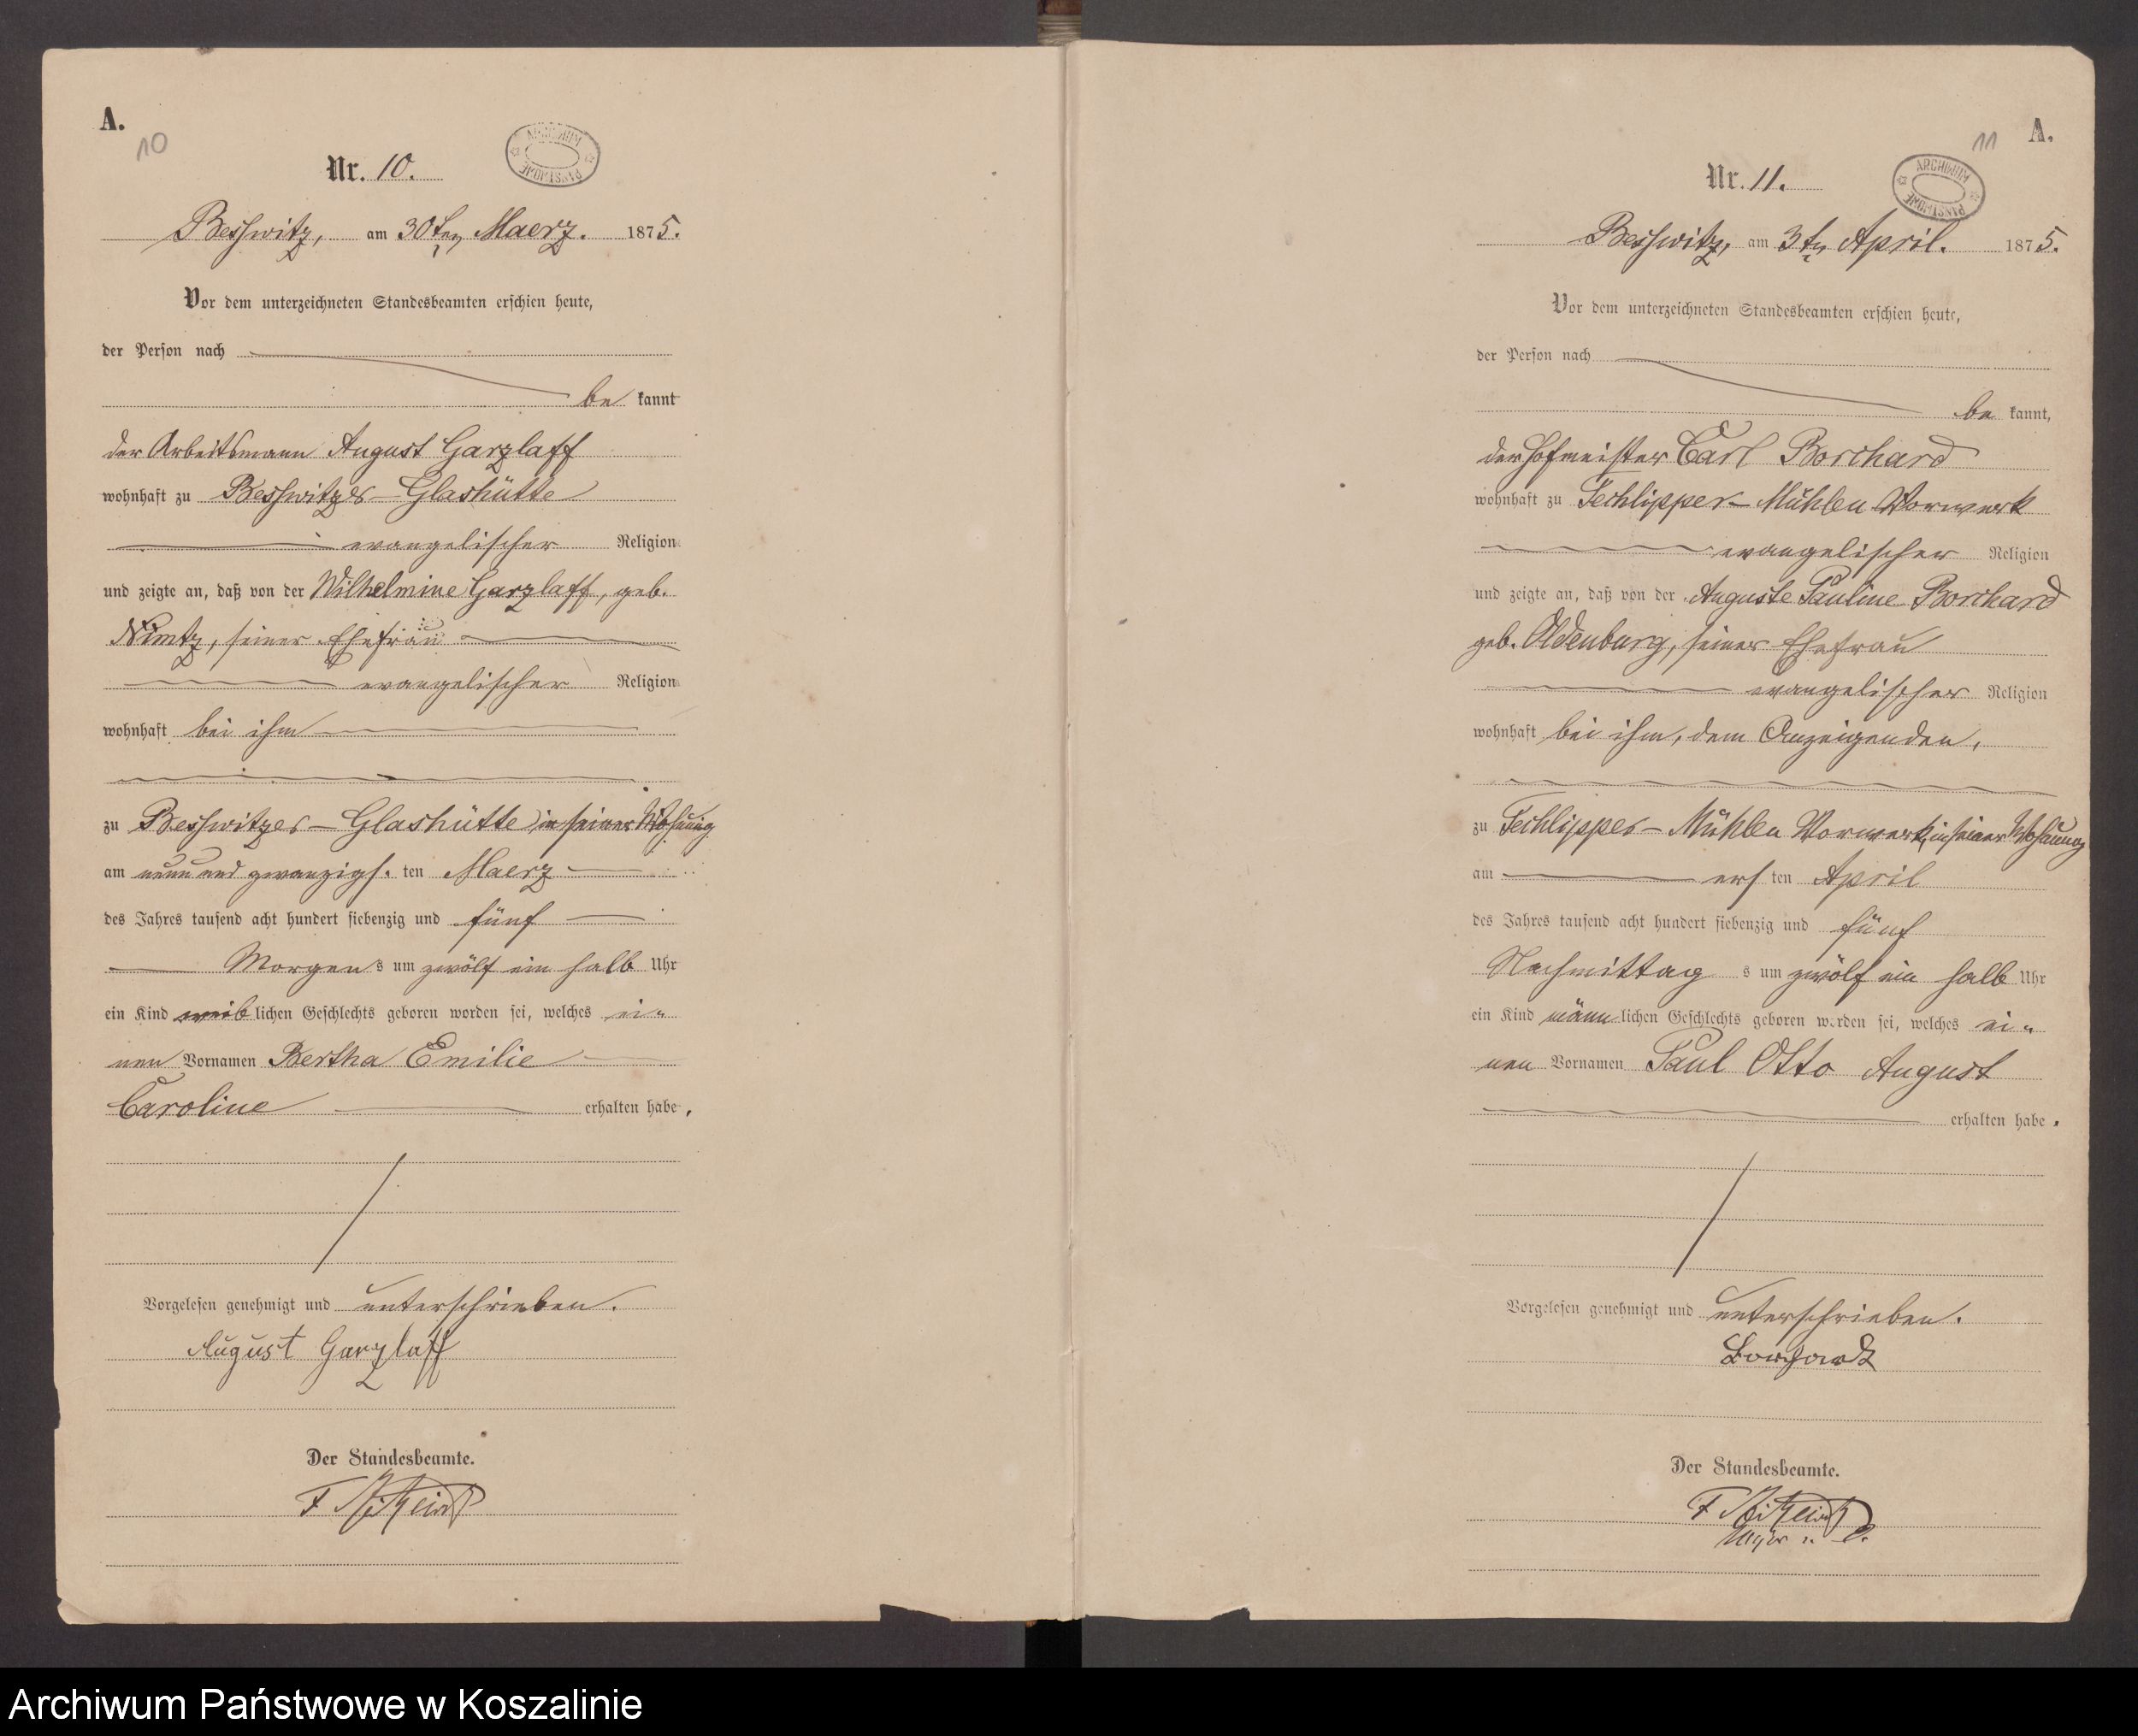 A.
10
Nr. 10.
ARCHIWUM PAŃSTWOWE
Besswitz, am 30ten Maerz. 1875.
Vor dem unterzeichneten Standesbeamten erschien heute,
der Person nach
be kannt
der Arbeitsmann August Garzlaff
wohnhaft zu Besswitzer-Glashütte
evangelischer Religion
und zeigte an, daß von der Wilhelmine Garzlaff, geb.
Nimtz, seiner Ehefrau
evangelischer Religion
wohnhaft bei ihm
zu Besswitzer-Glashütte in seiner Wohnung
am neun und zwanzigs. ten Maerz
des Jahres tausend acht hundert siebenzig und fünf
Morgens um zwölf ein halb Uhr
ein Kind weiblichen Geschlechts geboren worden sei, welches ei-
nen Vornamen Bertha Emilie
Caroline erhalten habe.
Vorgelesen genehmigt und unterschrieben.
August Garzlaff
Der Standesbeamte.
11
A.
Nr. 11.
ARCHIWUM PAŃSTWOWE
Besswitz, am 3ten April. 1875.
Vor dem unterzeichneten Standesbeamten erschien heute,
der Person nach
be kannt,
der Hofmeister Carl Borchard
wohnhaft zu Techlipper-Mühlen Vorwerk
evangelischer Religion
und zeigte an, daß von der Auguste Pauline Borchard
geb. Oldenburg, seiner Ehefrau
evangelischer Religion
wohnhaft bei ihm, dem Anzeigenden,
zu Techlipper-Mühlen Vorwerk, in seiner Wohnung
am ersten April
des Jahres tausend acht hundert siebenzig und fünf
Nachmittags um zwölf ein halb Uhr
ein Kind männlichen Geschlechts geboren worden sei, welches ei-
nen Vornamen Paul Otto August
erhalten habe.
Vorgelesen genehmigt und unterschrieben.
Borchardt
Der Standesbeamte.
Archiwum Państwowe w Koszalinie